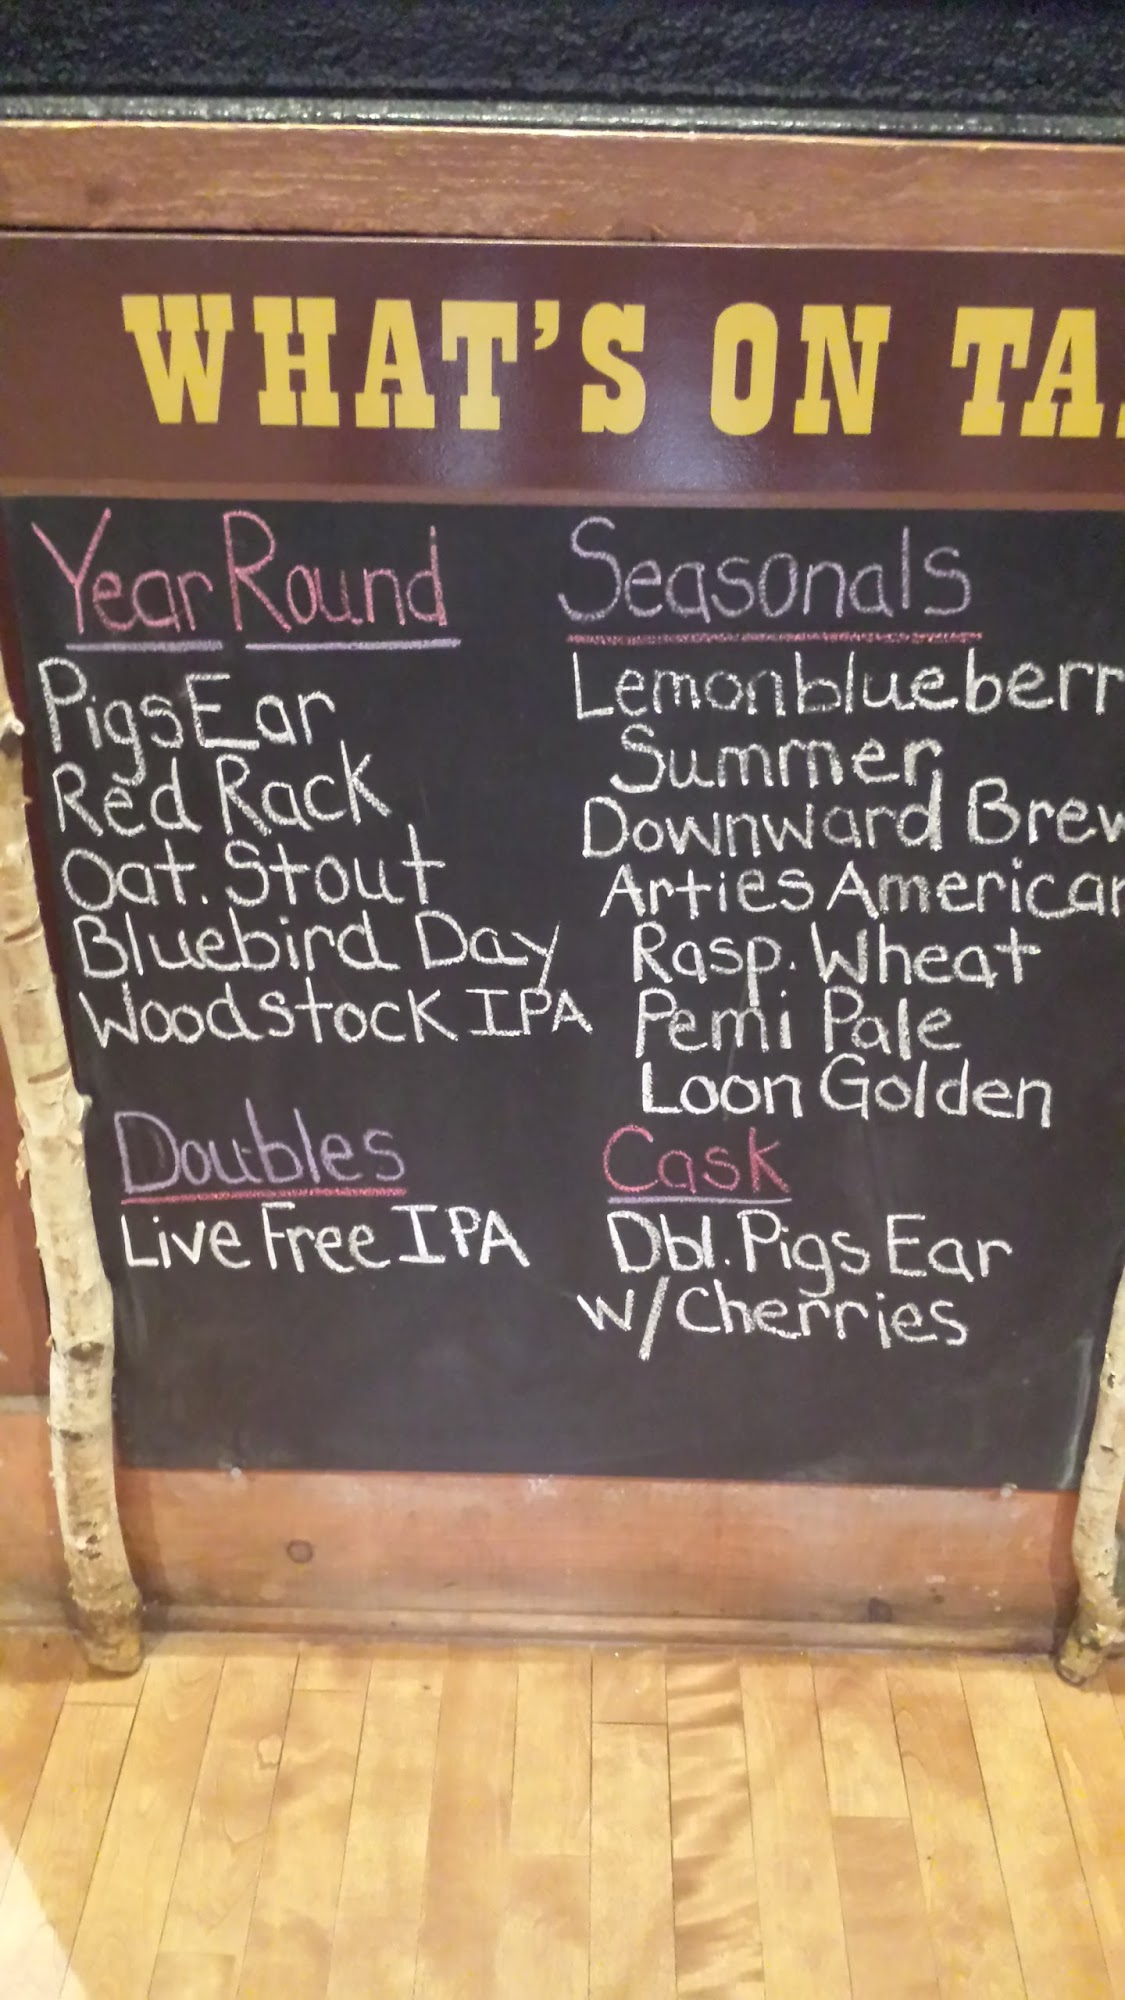 WHAT'S ON TA
Year Round
Pigs Ear
Red Rack
Oat. Stout
Bluebird Day
Woodstock IPA
Doubles
Live Free IPA
Seasonals
Lemonblueberr
Summer
Downward Brew
Arties American
Rasp. Wheat
Pemi Pale
Loon Golden
Cask
Dbl. Pigs Ear
w/Cherries